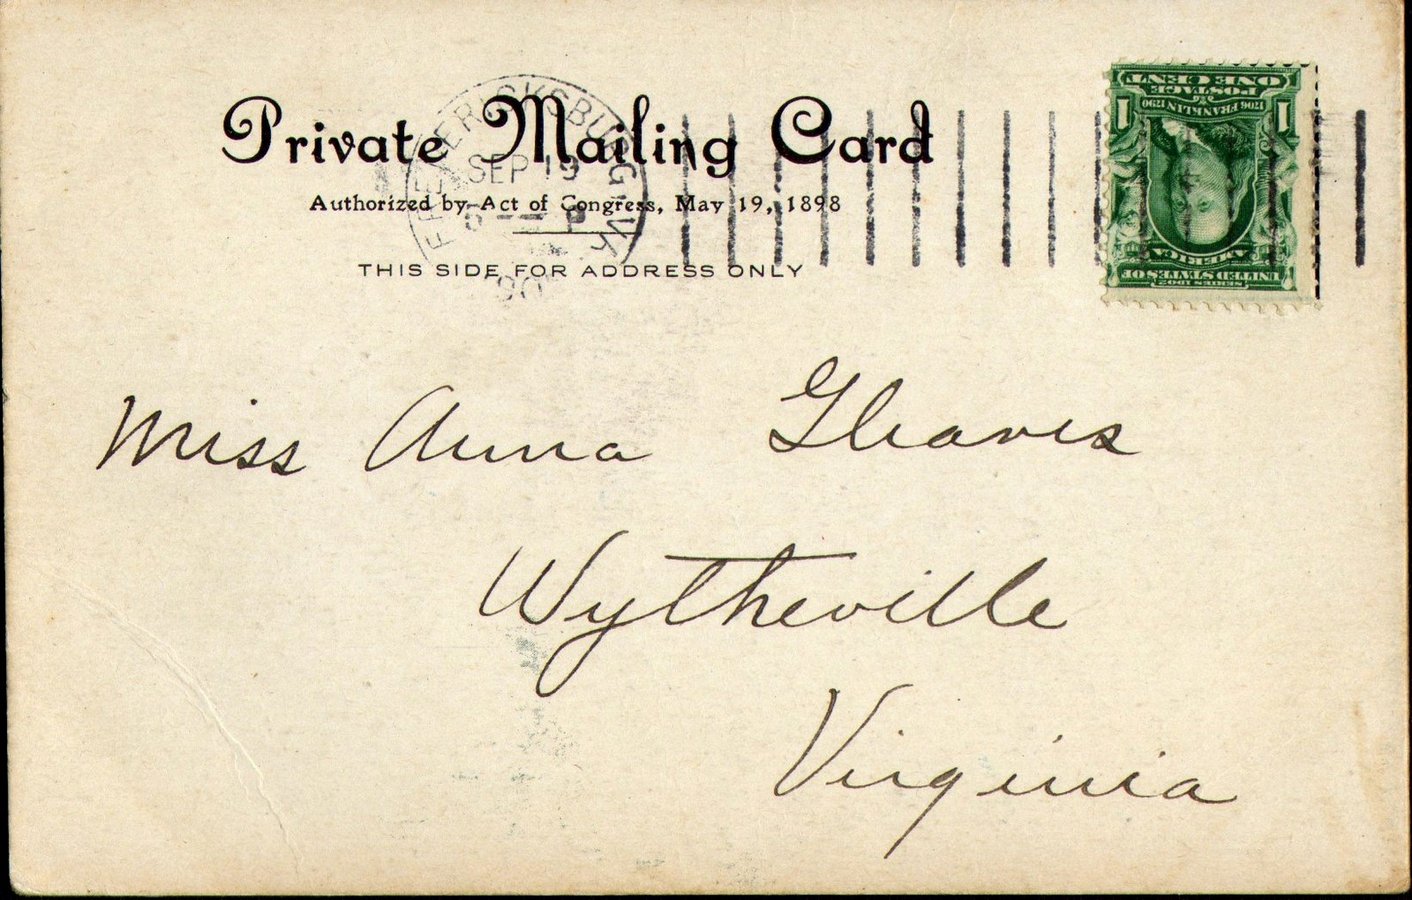 Private Mailing Card
Authorized by Act of Congress, May 19, 1898
THIS SIDE FOR ADDRESS ONLY
FREDERICKSBURG, VA
SEP 19
5 P
SERIES 1902
UNITED STATES OF
AMERICA
1706 FRANKLIN 1790
POSTAGE
1 ONE CENT 1
Miss Anna Gleaves
Wytheville
Virginia